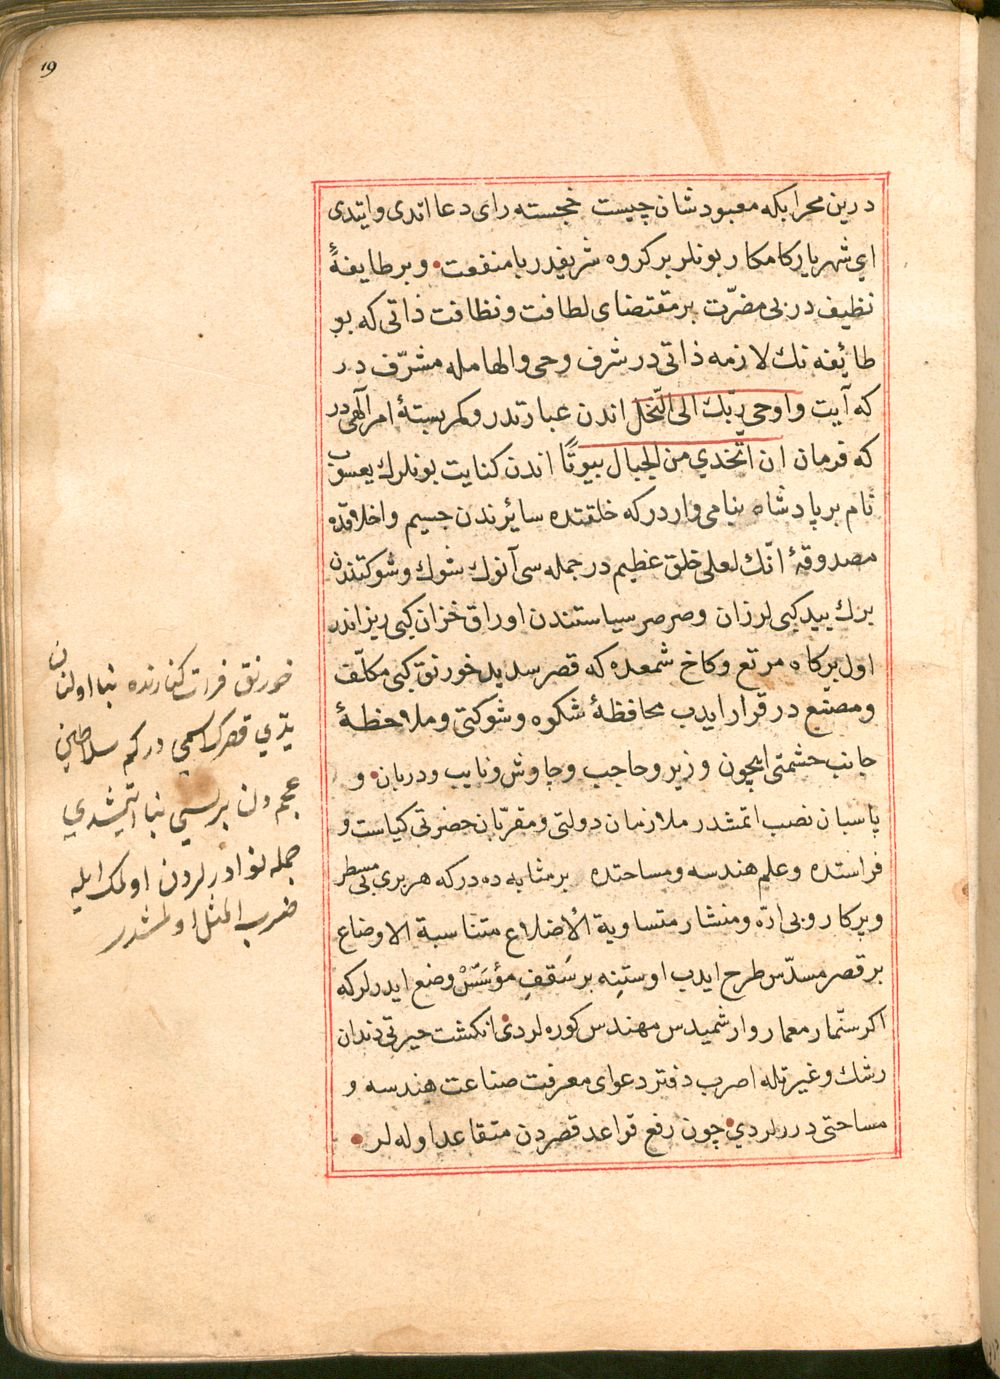 19
درین محرابکه معبودشان چیست خجسته رای دعا اتدی وایتدی
ای شهریار کامکار بونلر بر کروه شریفدر بامنفعت وبر طایفهٔ
نظیف در بی مضرّت بر مقتضای لطافت ونظافت ذاتی که بو
طایٔفه نك لازمه ذاتی در شرف وحی والهامله مشرّف در
که آیت واوحی ربّك الی النّحل اندن عبارتدر وکمر بستهٔ امر آلهی در
که فرمان ان اتّخذي من الجبال بیوتًا اندن کنایت بونلرك یعسوب
نام بر پادشاه بنامی واردر که خلقتده سایٔرندن جسیم واخلاقده
مصدوقهٔ انّك لعلی خلق عظیم در جمله سی آنوك شوك وشوکتندن
برك بید کبی لرزان وصرصر سیاستندن اوراق خزان کبی ریزاندر
اول بر کاه مرتع وکاخ شمعده که قصر سدید خورنق کبی مکلّف
ومصنّع در قرار ایدب محافظهٔ شکوه وشوکتی وملاحظهٔ
جانب حشمتی ایچون وزیر وحاجب وچاوش ونایب ودربان و
پاسبان نصب اتمشدر ملازمان دولتی ومقرّبان حضرتی کیاست و
فراستده وعلم هندسه ومساحتده بر مثابه ده در که هر بری بی مسطر
وپرکار وبی ارّه ومنشار متساویة الأضلاع متناسبة الاوضاع
بر قصر مسدّس طرح ایدب اوستنه بر سَقفِ مؤسَّسْ وضع ایدرلر که
اکر سنّمار معمار وارشمیدس مهندس کوره لردی انکشت حیرتی دندان
رشك وغیرتله اصرب دفتر دعوای معرفت صناعت هندسه و
مساحتی دررلردي چون رفع قواعد قصردن متقاعد اوله لر
خورنق فرات کنارنده بنا اولنان
یدي قصرك اسمی درکم سلاطین
عجم دن بریسي بنا اتمشدي
جمله نوادرلردن اولمك ایله
ضرب المثل اولمشدر